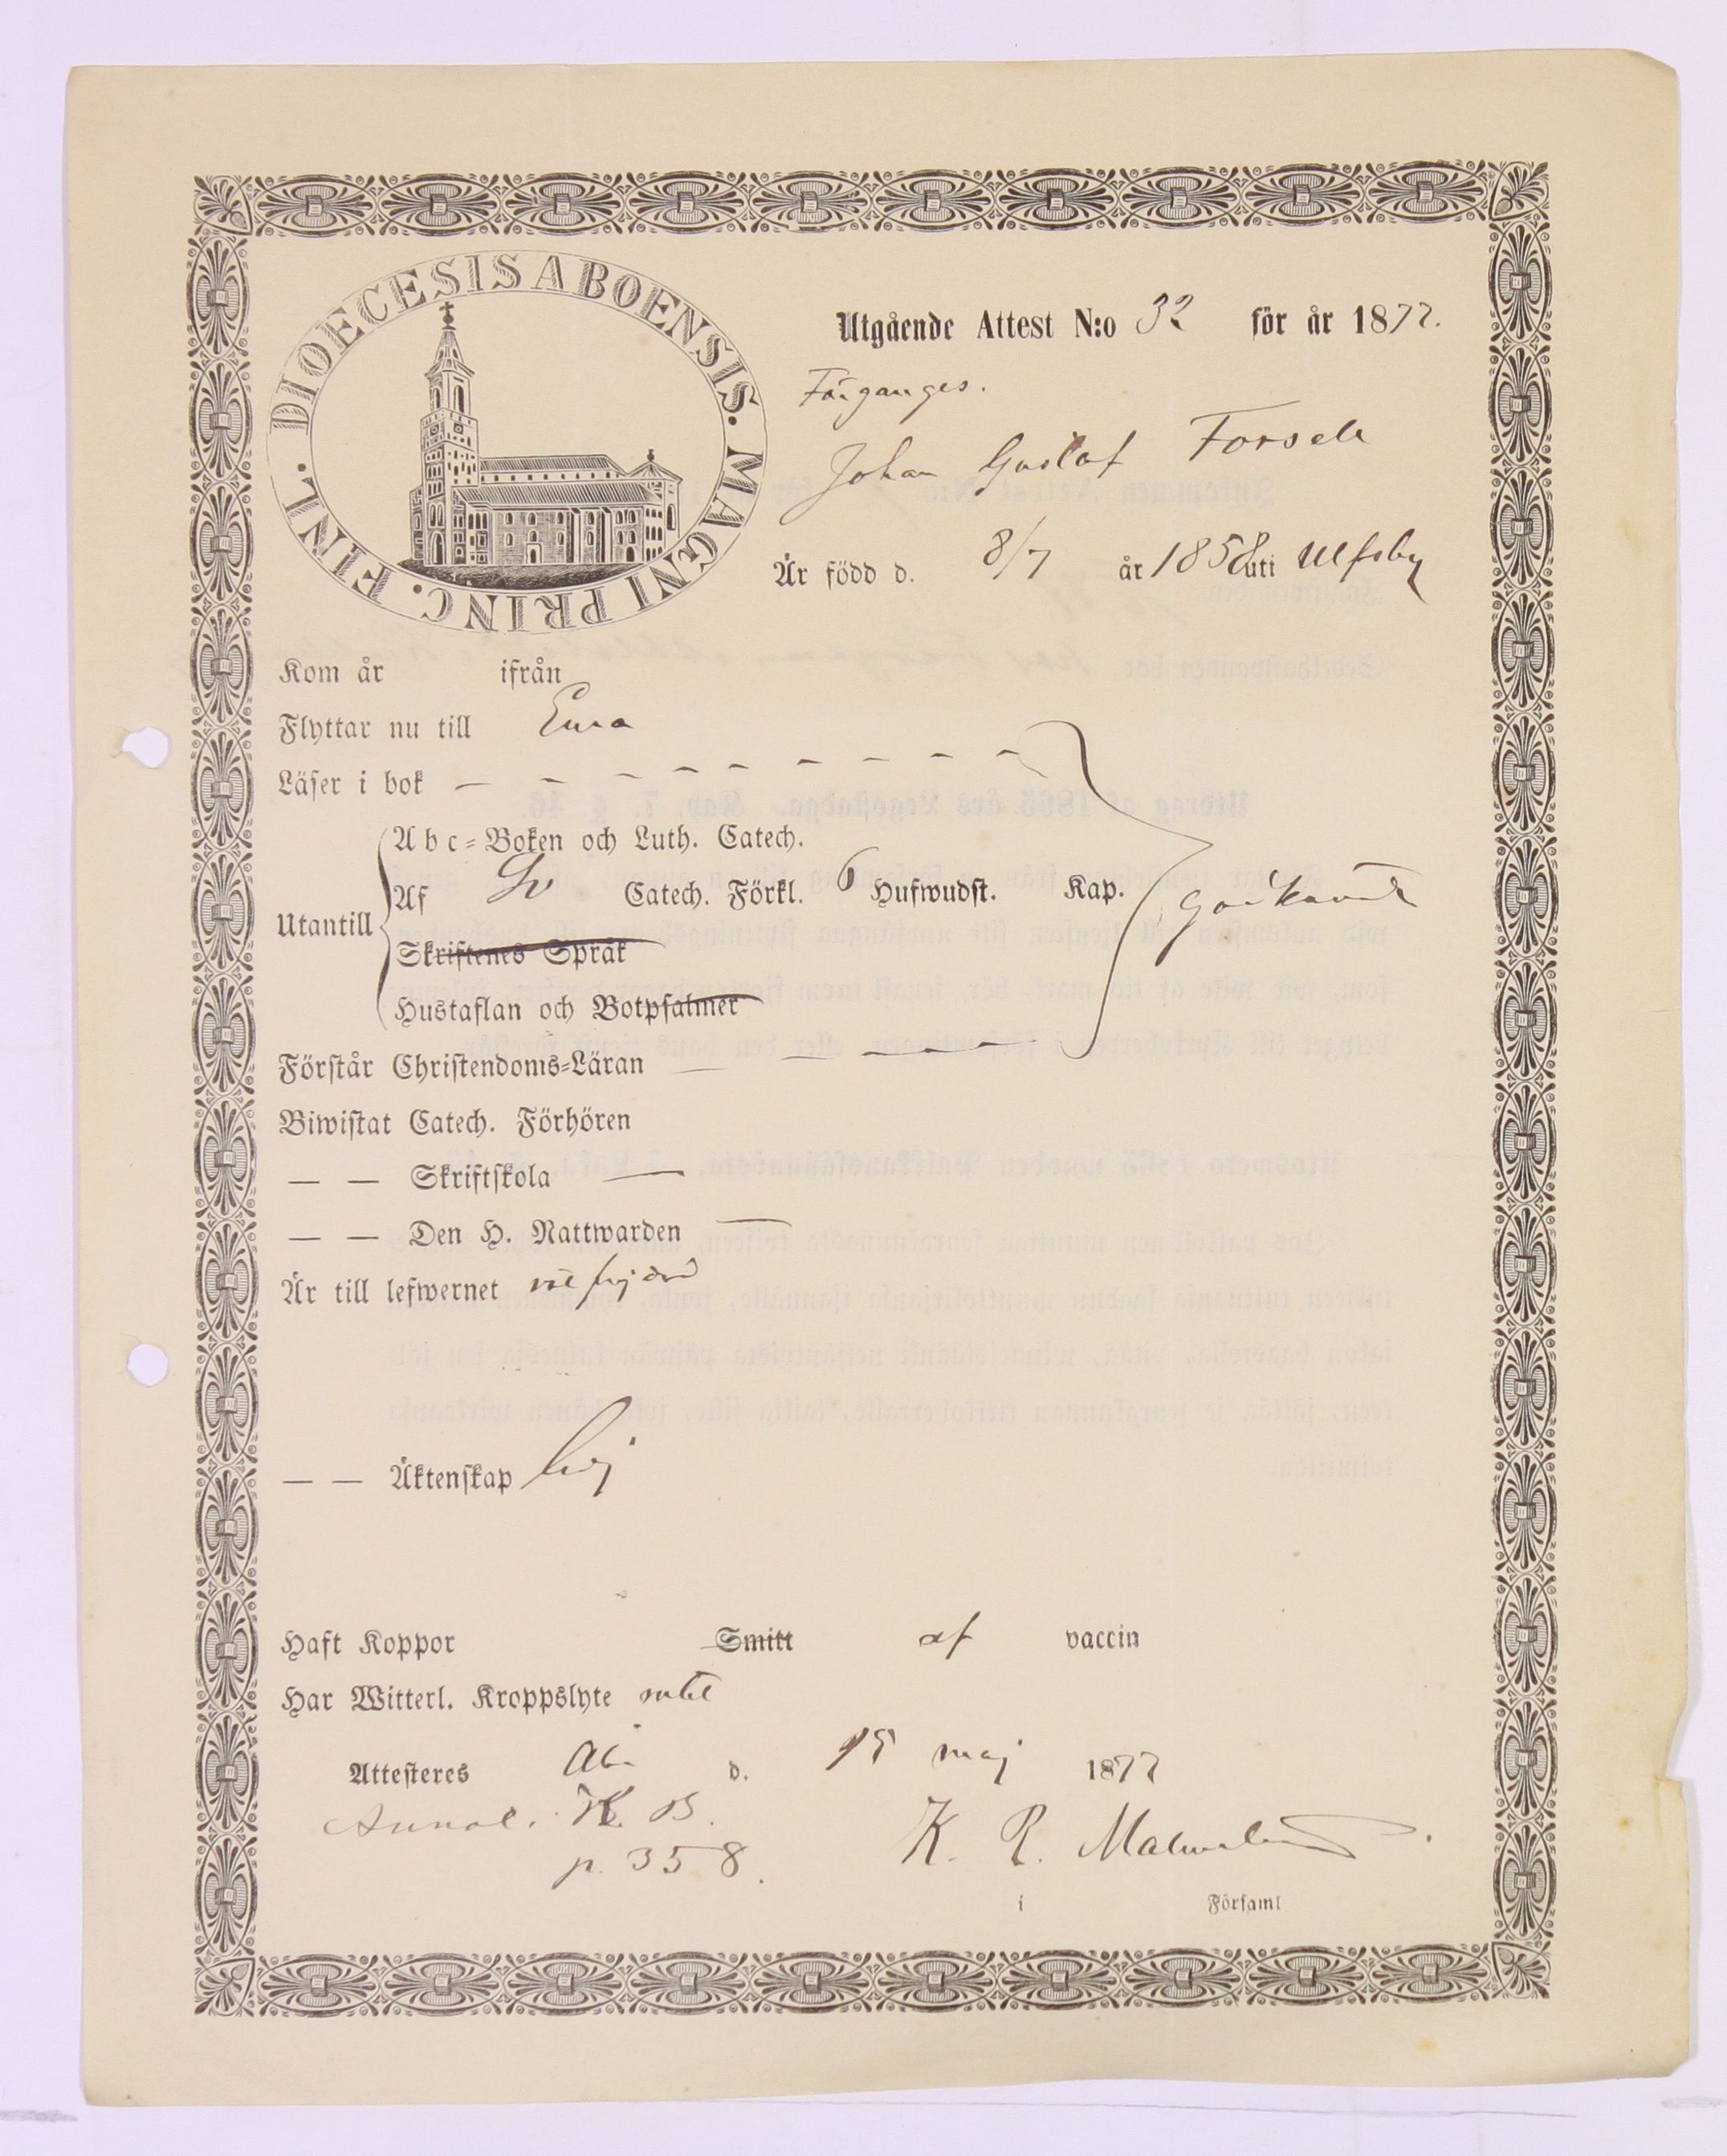 DIOECESIS ABOENSIS. MAGNI PRINC. FINL.
Utgående Attest N:o 32 för år 1877.
Färganges.
Johan Gustaf Forsell
Är född d. 8/7 år 1858 uti Ulfsby
Kom år ifrån
Flyttar nu till Eura
Läser i bok — — — — — — — — —
Abc-Boken och Luth. Catech.
Utantill Af Sv Catech. Förkl. 6 Hufwudst. Kap. Godkändt
Skriftenes Språk
Hustaflan och Botpsalmer
Förstår Christendoms-Läran — — — — — —
Biwistat Catech. Förhören
— — Skriftskola —
— — Den H. Nattwarden —
Är till lefwernet välfrejdad
— — Äktenskap frej
Haft Koppor Smitt af vaccin
Har Witterl. Kroppslyte intet
Attesteres Åbo d. 15 maj 1877
Annot. K. B.
p. 358.
K. R. Malmström.
i Församl